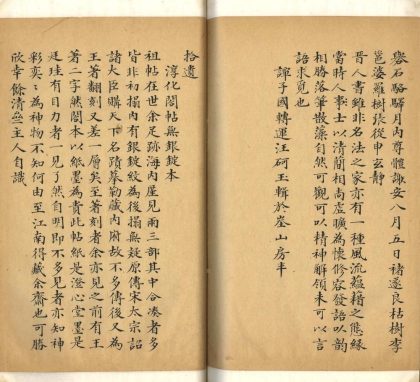 礜石駱驛月內尊體諏安八月五日褚遂良枯樹李
邕婆羅樹張從申玄靜
晉人書雖非名法之家亦有一種風流蘊藉之態緣
當時人士以清簡相尚虛曠為懷修容發語以韻
相勝落筆散藻自然可觀可以精神解領未可以言
語求覓也
譚子國轉運汪砢玉輯於崟山房半
拾遺
淳化閣帖無銀錠本
祖帖在世余足跡海內屋見兩三部其中合湊者多
皆非初搨內有銀錠紋為後搨無疑原傳宋太宗詔
諸大臣購天下名蹟摹勒藏內府故不多傳後又為
王著翻刻又差一層矣至著刻者余亦見之前有王
著二字然閣本以紙墨為貴此帖紙是澄心堂墨是
廷珪有目力者一見了然自明即不多見者亦知神
彩奕々為神物不知何由至江南得藏余齋也可勝
欣幸餘清齋主人自識